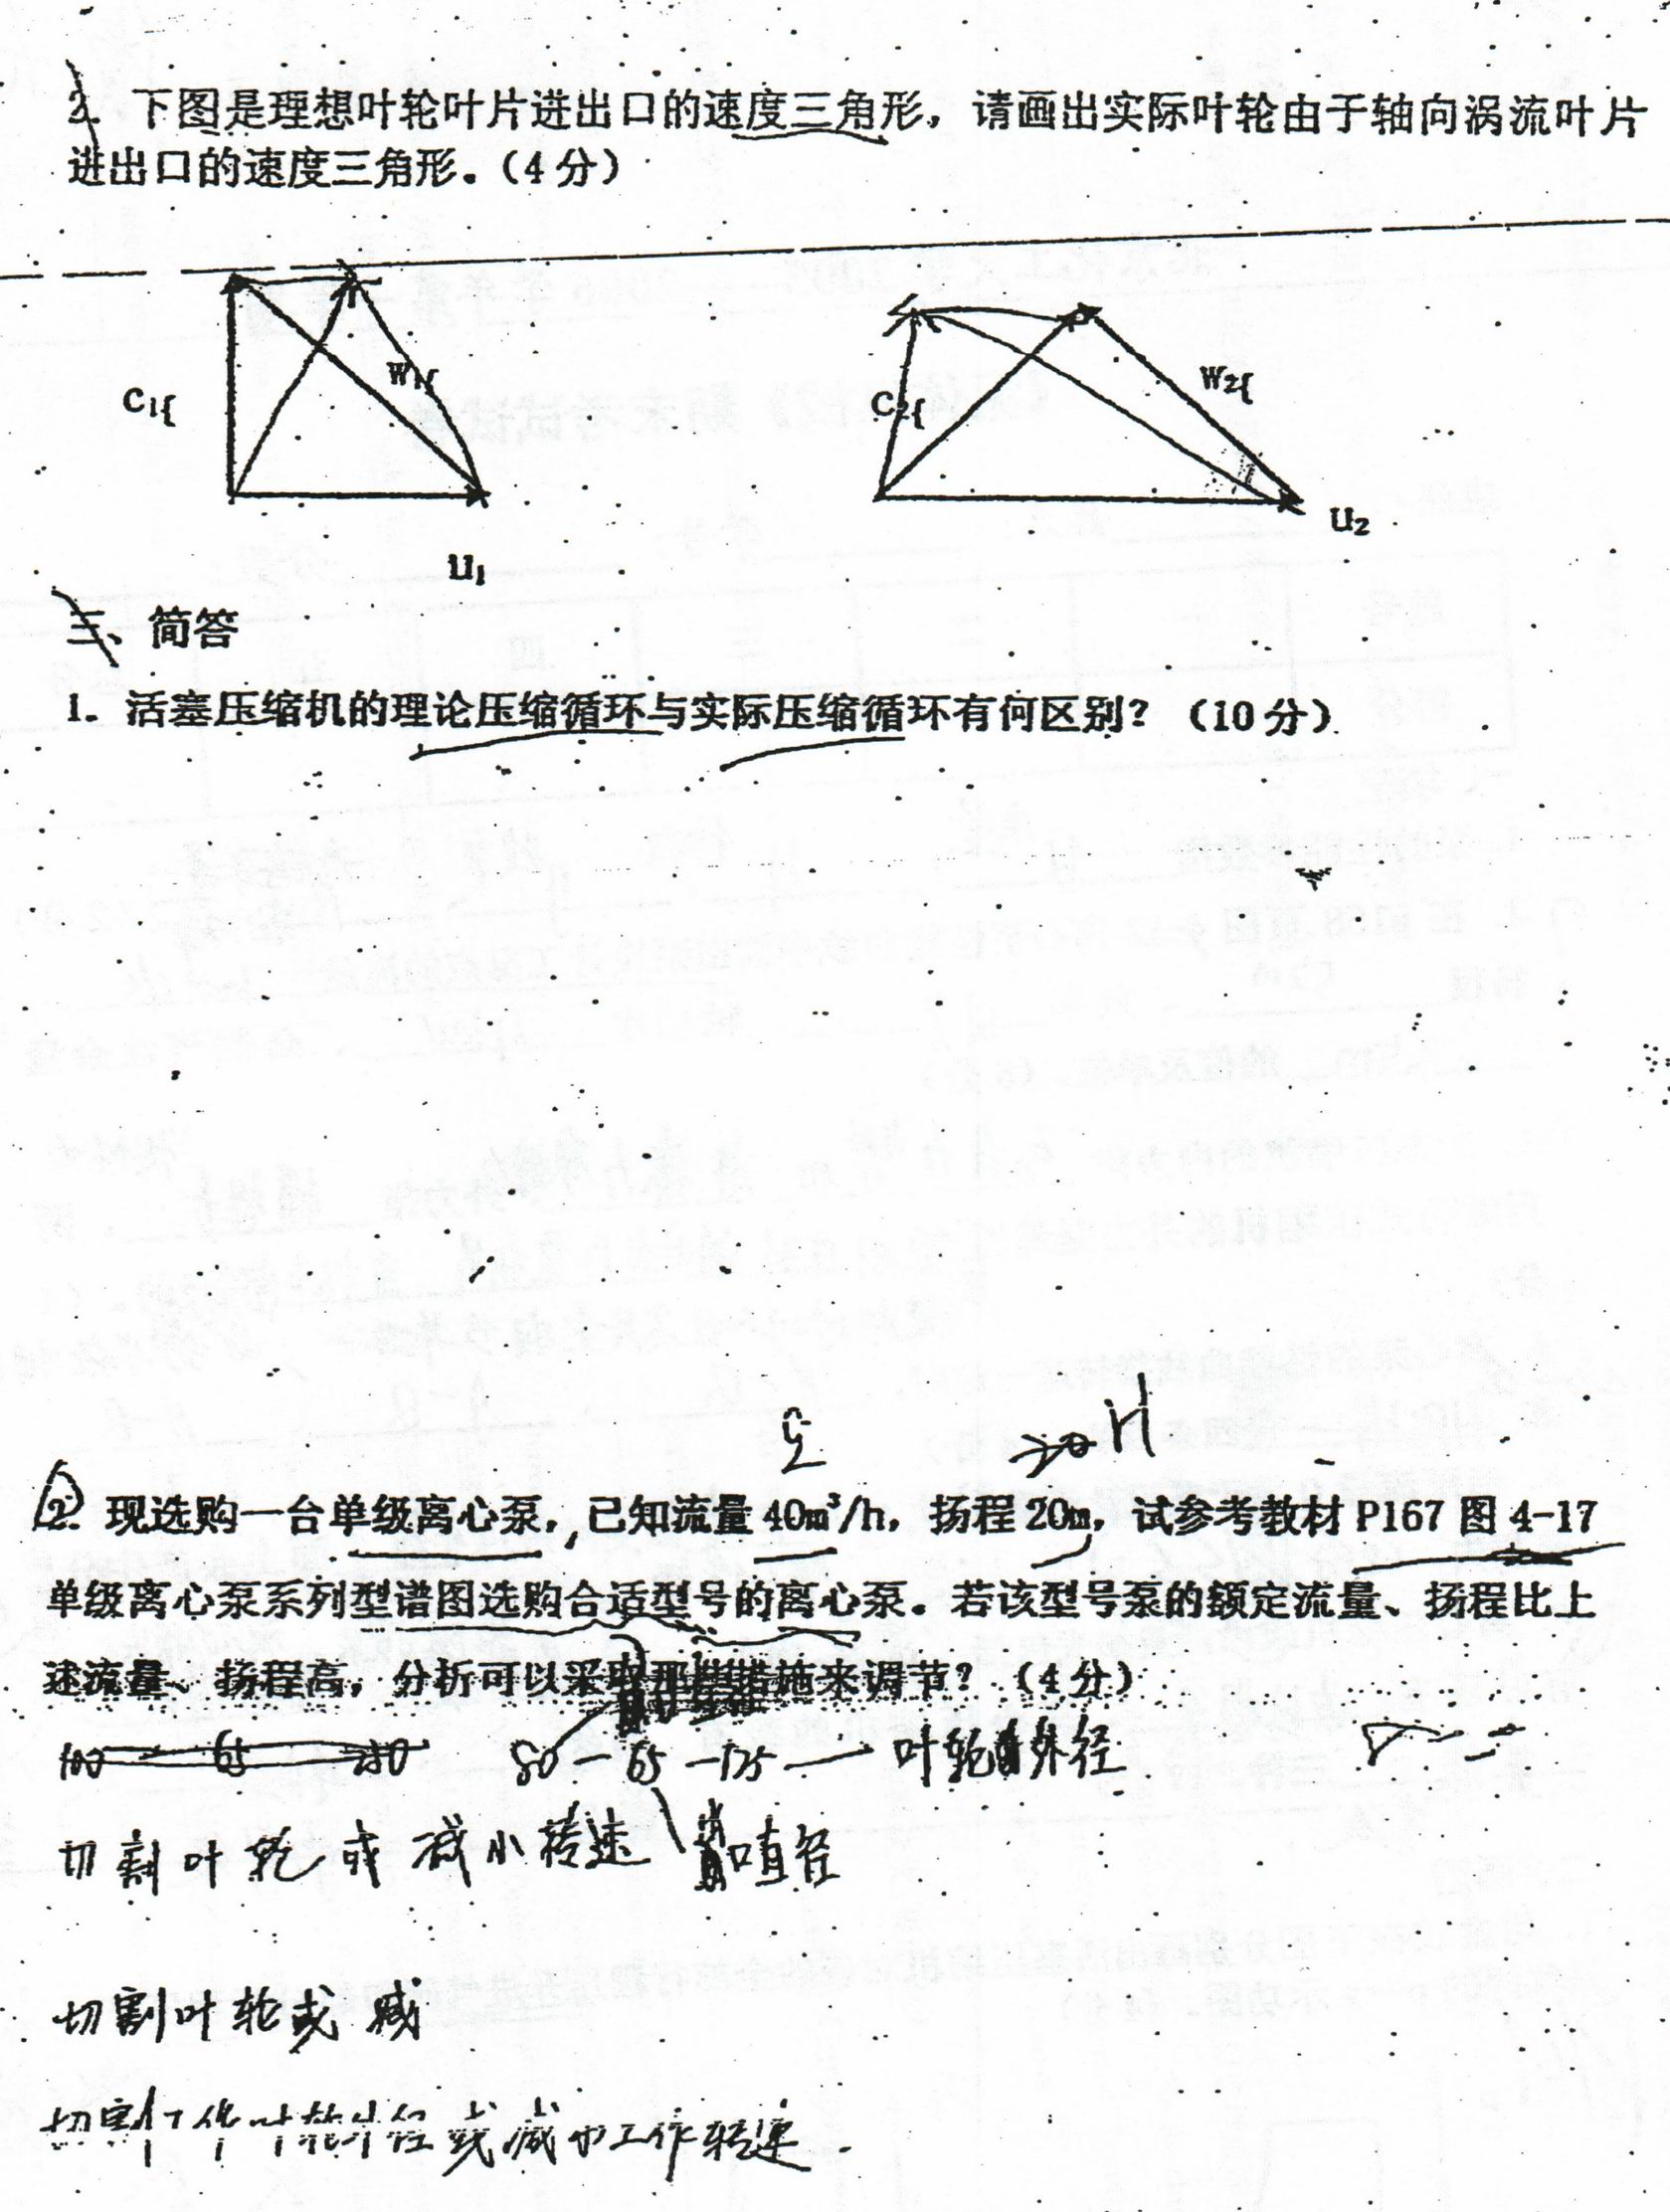 2. 下图是理想叶轮叶片进出口的速度三角形，请画出实际叶轮由于轴向涡流叶片
进出口的速度三角形。（4分）
C1{ W1{ C2{ W2{
U1 U2
三、简答
1. 活塞压缩机的理论压缩循环与实际压缩循环有何区别？（10分）
20 H
2. 现选购一台单级离心泵，已知流量40m³/h，扬程20m，试参考教材P167图4-17
单级离心泵系列型谱图选购合适型号的离心泵。若该型号泵的额定流量、扬程比上
述流量、扬程高，分析可以采取那些措施来调节？（4分）
100 65 250 80-65-125—叶轮外径
切割叶轮或减小转速 口直径
切割叶轮或减
切割工作叶轮外径或减小工作转速.